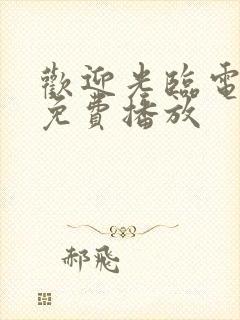 歡迎光臨電
免費播放
郝飛